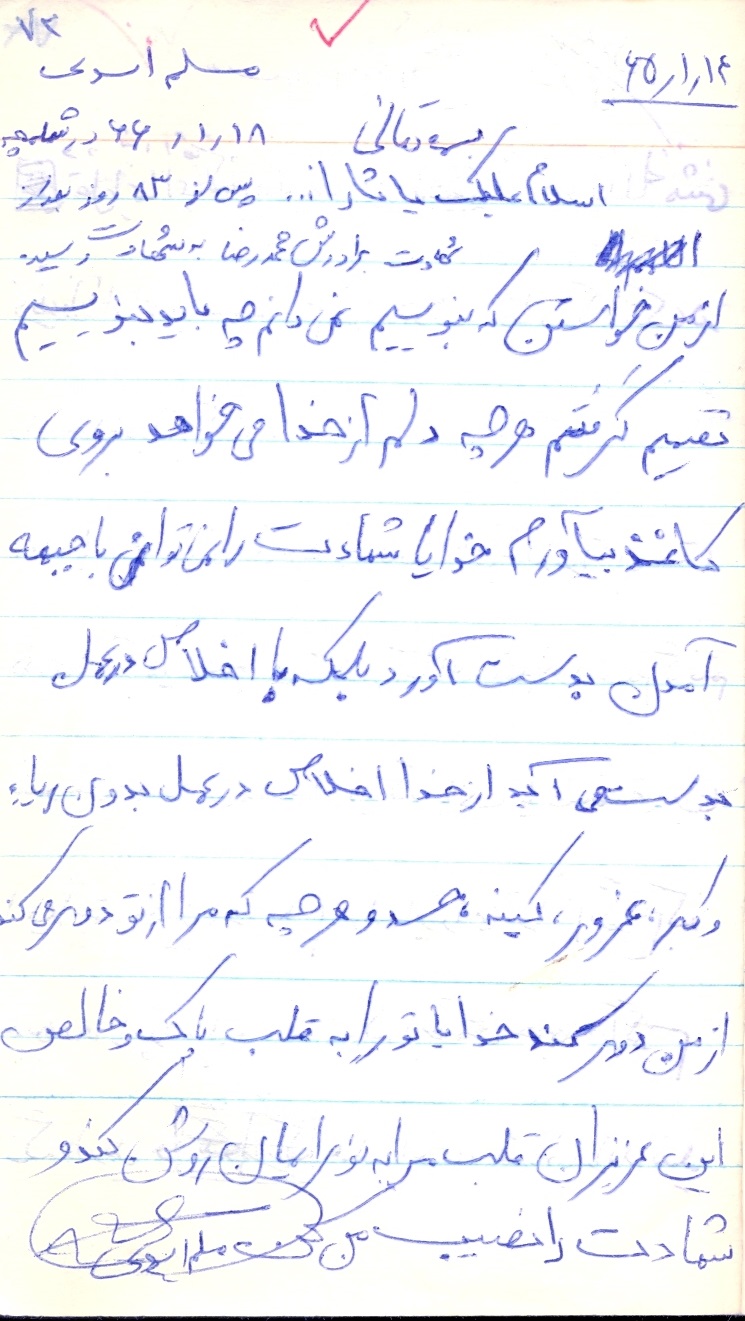 ۷۳
مسلم اسدی
۶۵/۱/۱۴
بسمه تعالی
۶۶/۱/۱۸ در شلمچه
اسلام علیک یا ثارا... پس از ۸۳ روز بعد از
شهادت برادرش محمدرضا به شهادت رسید.
از من خواستن که بنویسم نمی دانم چه باید بنویسم
تصمیم گرفتم هر چه دلم از خدا می خواهد بروی
کاغذ بیآورم خدایا شهادت را نمی توان با جبهه
آمدن بدست آورد بلکه با اخلاص در عمل
بدست می آید از خدا اخلاص در عمل بدون ریاء
و کبر، غرور، کینه، حسد و هر چه که مرا از تو دور می کند
از من دور کند خدایا تو را به قلب پاک و خالص
این عزیزان قلب مرا به نور ایمان روشن کند و
شهادت را نصیب من مسلم اسدی